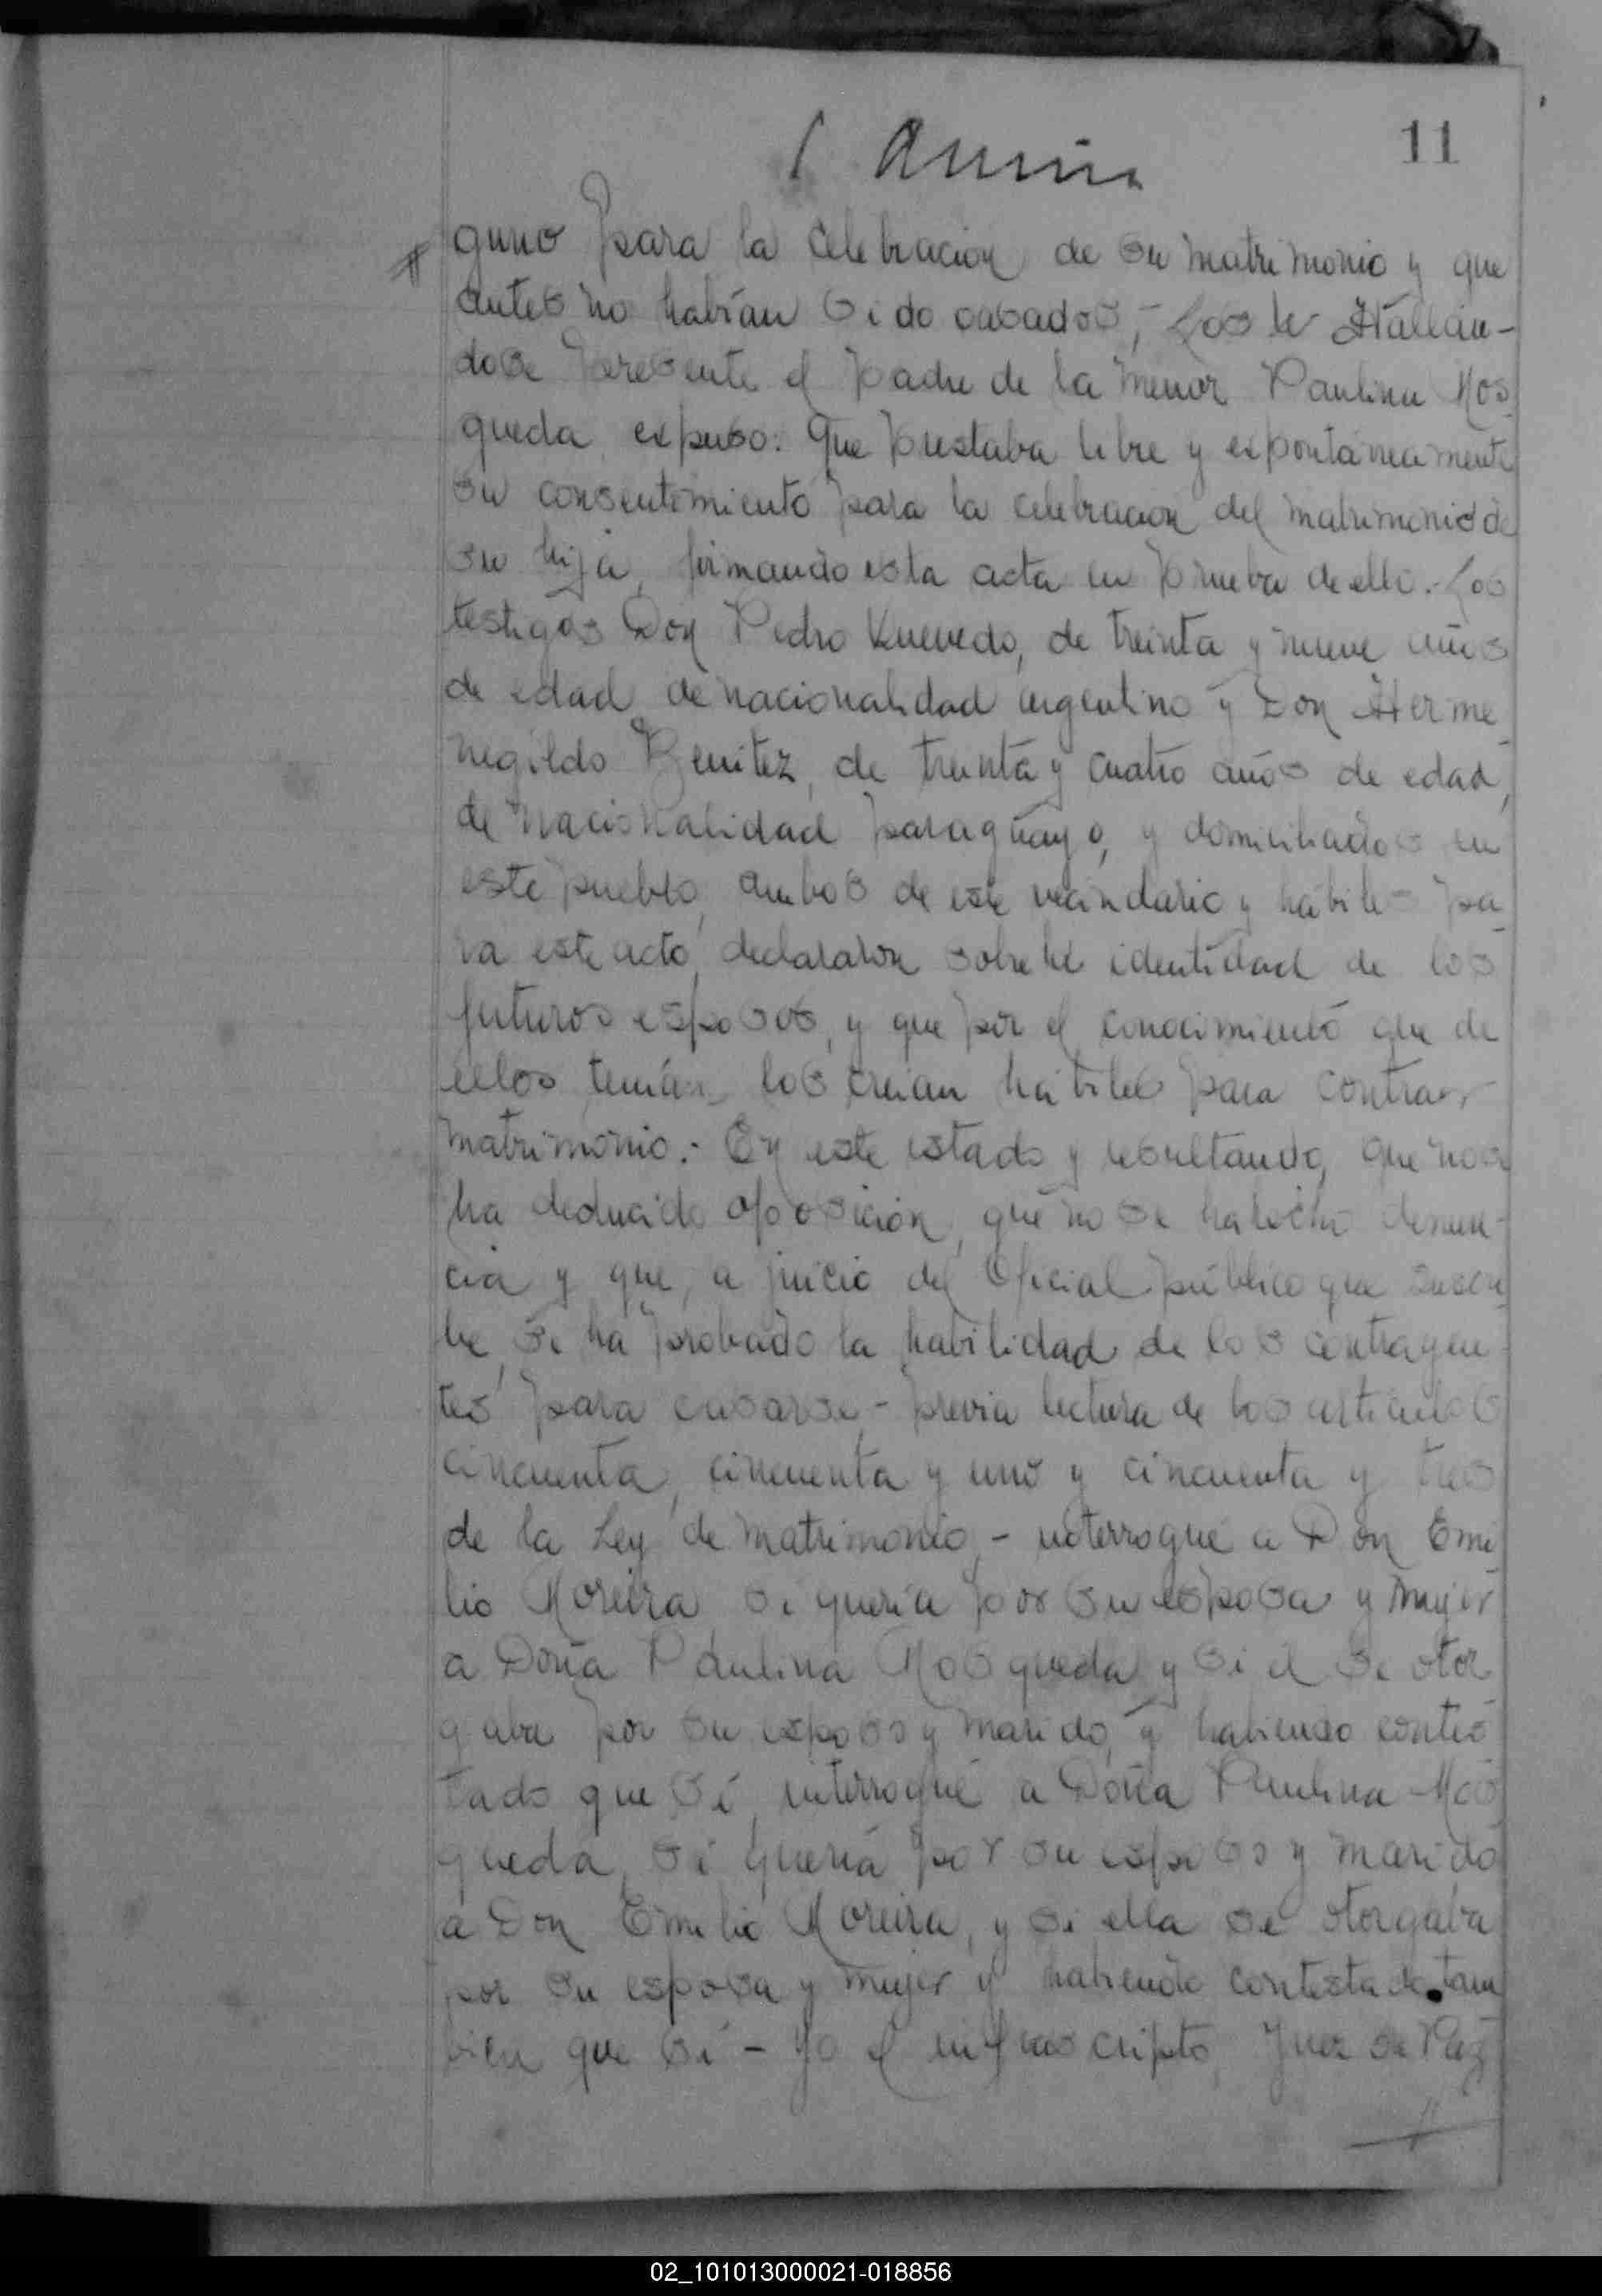 11
guno para la celebracion de su matrimonio y que
antes no habían sido casados, - Hallán-
dose presente el padre de la menor Paulina Mos
queda, expuso: Que prestaba libre y espontáneamente
su consentimiento para la celebracion del matrimonio de
su hija, firmando esta acta en prueba de ello.- Los
testigos Don Pedro Quevedo, de treinta y nueve años
de edad de nacionalidad argentino y Don Herme
negildo Benitez, de treinta y cuatro años de edad,
de nacionalidad paraguayo, y domiciliados en
este pueblo, ambos de este vecindario y hábiles pa
ra este acto, declararon sobre la identidad de los
futuros esposos, y que por el conocimiento que de
ellos tenían, los creian hábiles para contraer
matrimonio.- En este estado y resultando, que no se
ha deducido oposición, que no se ha hecho denun-
cia y que, a juicio del Oficial público que suscri
be, se ha probado la habilidad de los contrayen
tes para casarse,- previa lectura de los articulos
cincuenta, cincuenta y uno y cincuenta y tres
de la Ley de matrimonio,- interrogué a Don Emi
lio Moreira si quería por su esposa y mujer
a Doña Paulina Mosqueda y si el se otor
gaba por su esposo y marido, y habiendo contes
tado que sí, interrogué a Doña Paulina Mos
queda, si quería por su esposo y marido
a Don Emilio Moreira, y si ella se otorgaba
por su esposa y mujer y habiendo contestado tam
bien que sí - Yo el infrascripto, Juez de Paz
02_101013000021-018856